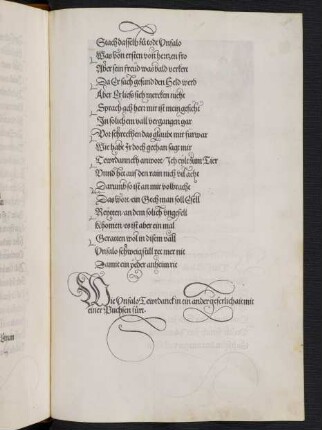 Nach dasselb stundt Unfalo
Was von ersten von hertzen fro
Aber sein freud was bald verkert
Da Er sach gesund den Held werd
Aber Er ließ sich mercken nicht
Sprach zu herr mir ist mein gesicht
In solichem vall vergangen gar
Vor schrecken das glaubt mir furwar
Wie habt Ir doch gethan sagt mir
Tewrdannckh antwort Ich eylt zum Tier
Unnd het auf den rain nicht vil acht
Darumb so ist an mir volbracht
Das wort ein Gech man soll Esell
Reyten an dem solich ungefell
Khomen es ist aber ein mal
Geraten wol in disem vall
Unfalo schwieg still ret mer nit
Damit ein yeder anheim rit
Wie Unfalo Tewrdanck in ein ander geferlichait mit
einer Puchsen fürt